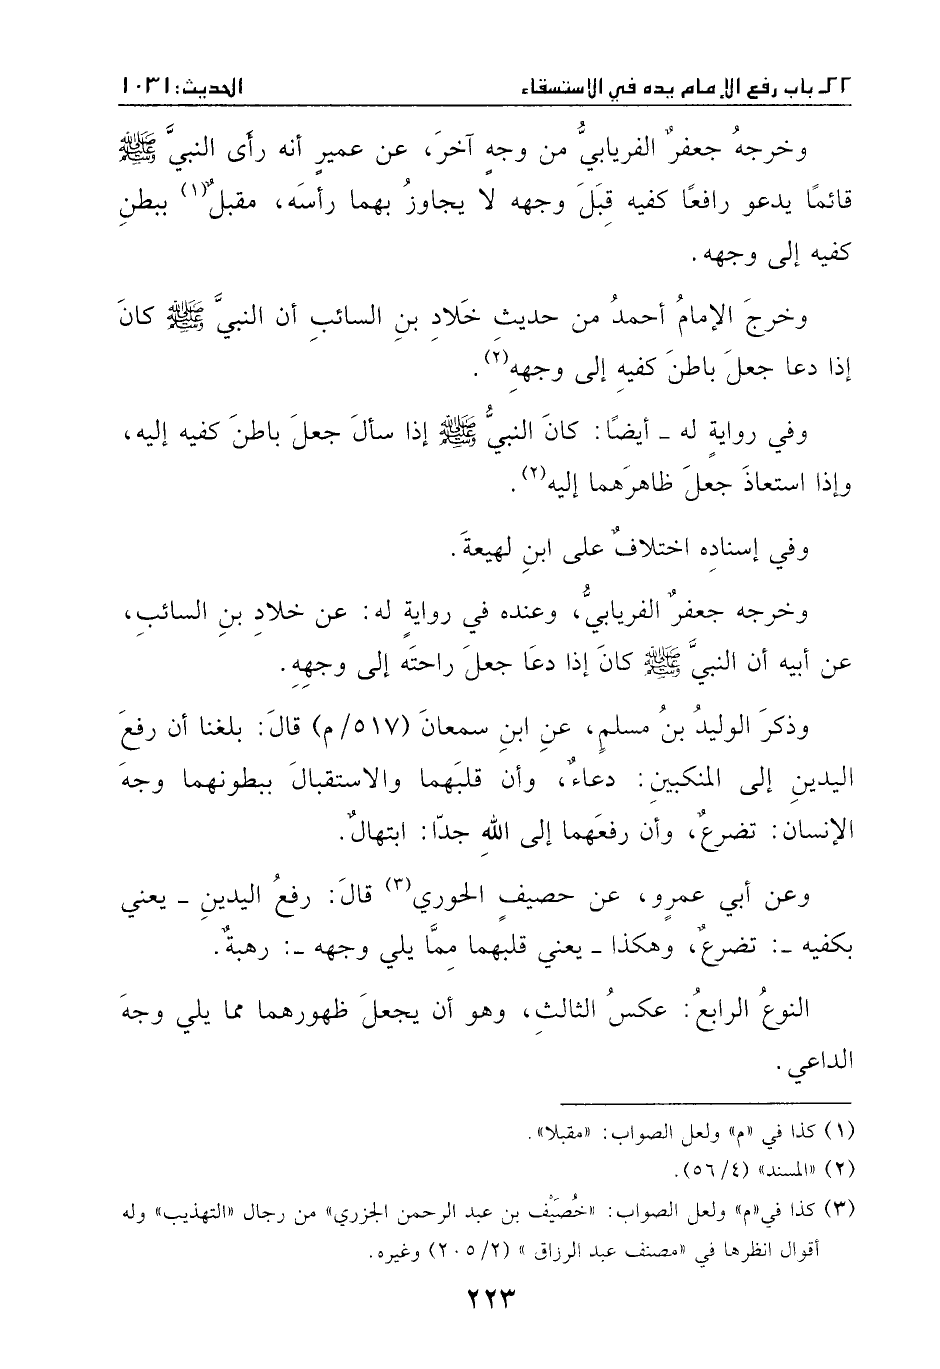 ٢٢ـ باب رفع الإمام يده في الاستسقاء الحديث: ١٠٣١
وخرجهُ جعفرٌ الفريابيُّ من وجهٍ آخرَ، عن عميرٍ أنه رأى النبيَّ ﷺ
قائمًا يدعو رافعًا كفيه قِبَلَ وجهه لا يجاوزُ بهما رأسَه، مقبلٌ(١) ببطنِ
كفيه إلى وجهه.
وخرجَ الإمامُ أحمدُ من حديثِ خَلادِ بنِ السائبِ أن النبيَّ ﷺ كانَ
إذا دعا جعلَ باطنَ كفيهِ إلى وجههِ(٢).
وفي روايةٍ له ـ أيضًا: كانَ النبيُّ ﷺ إذا سألَ جعلَ باطنَ كفيه إليه،
وإذا استعاذَ جعلَ ظاهرَهما إليه(٢).
وفي إسنادِه اختلافٌ على ابنِ لهيعةَ.
وخرجه جعفرٌ الفريابيُّ، وعنده في روايةٍ له: عن خلادِ بنِ السائبِ،
عن أبيه أن النبيَّ ﷺ كانَ إذا دعَا جعلَ راحتَه إلى وجهِهِ.
وذكرَ الوليدُ بنُ مسلمٍ، عنِ ابنِ سمعانَ (٥١٧/م) قالَ: بلغنا أن رفعَ
اليدينِ إلى المنكبينِ: دعاءٌ، وأن قلبَهما والاستقبالَ ببطونهما وجهَ
الإنسان: تضرعٌ، وأن رفعَهما إلى اللهِ جدّا: ابتهالٌ.
وعن أبي عمرٍو، عن حصيفٍ الحوري(٣) قالَ: رفعُ اليدينِ ـ يعني
بكفيه ـ: تضرعٌ، وهكذا ـ يعني قلبهما مِمَّا يلي وجهه ـ: رهبةٌ.
النوعُ الرابعُ: عكسُ الثالثِ، وهو أن يجعلَ ظهورهما مما يلي وجهَ
الداعي.
(١) كذا في «م» ولعل الصواب: «مقبلا».
(٢) «المسند» (٥٦/٤).
(٣) كذا في«م» ولعل الصواب: «خُصَيْف بن عبد الرحمن الجزري» من رجال «التهذيب» وله
أقوال انظرها في «مصنف عبد الرزاق » (٢٠٥/٢) وغيره.
٢٢٣